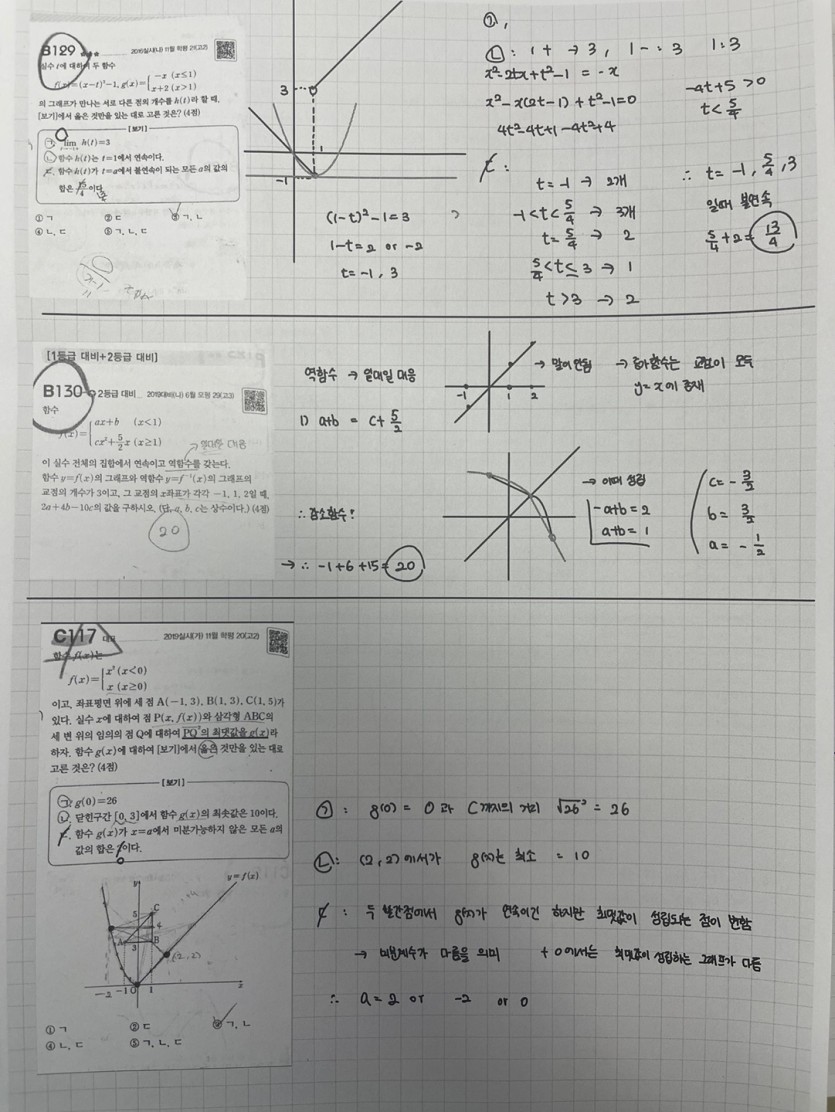 B129
2019실시(나) 11월 학평 21(고2)
실수 t에 대하여 두 함수
f(x)=(x-t)²-1, g(x)={-x (x≤1)
x+2 (x>1)
의 그래프가 만나는 서로 다른 점의 개수를 h(t)라 할 때,
[보기]에서 옳은 것만을 있는 대로 고른 것은? (4점)
[보기]
lim h(t)=3
ㄴ. 함수 h(t)는 t=1에서 연속이다.
ㄷ. 함수 h(t)가 t=a에서 불연속이 되는 모든 a의 값의
합은 이다.
① ㄱ ② ㄷ ③ ㄱ, ㄴ
④ ㄴ, ㄷ ⑤ ㄱ, ㄴ, ㄷ
3
1
-1
(1-t)²-1=3
1-t=2 or -2
t=-1, 3
ㄱ,
ㄴ: 1+ → 3, 1-: 3 1:3
x²-2tx+t²-1=-x
x²-x(2t-1)+t²-1=0
4t²-4t+1-4t²+4
-4t+5>0
t<5/4
ㄷ:
t=-1 → 2개
-1<t<5/4 → 3개
t=5/4 → 2
5/4<t≤3 → 1
t>3 → 2
∴ t=-1, 5/4, 3
일때 불연속
5/4+2=13/4
[1등급 대비+2등급 대비]
B130 2등급 대비 2019대비(나) 6월 모평 29(고3)
함수
f(x)={ax+b (x<1)
cx²+5/2x (x≥1)
일대일 대응
이 실수 전체의 집합에서 연속이고 역함수를 갖는다.
함수 y=f(x)의 그래프와 역함수 y=f⁻¹(x)의 그래프의
교점의 개수가 3이고, 그 교점의 x좌표가 각각 -1, 1, 2일 때,
2a+4b-10c의 값을 구하시오. (단, a, b, c는 상수이다.) (4점)
20
역함수 → 일대일 대응
1) a+b = c+5/2
∴ 감소함수!
→ ∴ -1+6+15=20
-1 1 2
→ 말이 안됨 → 증가함수는 교점이 모두
y=x에 존재
→ 이때 성립
-a+b=2
a+b=1
c=-3/2
b=3/2
a=-1/2
C117
2019실시(가) 11월 학평 20(고2)
함수 f(x)는
f(x)={x² (x<0)
x (x≥0)
이고, 좌표평면 위에 세 점 A(-1, 3), B(1, 3), C(1, 5)가
있다. 실수 x에 대하여 점 P(x, f(x))와 삼각형 ABC의
세 변 위의 임의의 점 Q에 대하여 PQ²의 최댓값을 g(x)라
하자. 함수 g(x)에 대하여 [보기]에서 옳은 것만을 있는 대로
고른 것은? (4점)
[보기]
ㄱ. g(0)=26
ㄴ. 닫힌구간 [0, 3]에서 함수 g(x)의 최솟값은 10이다.
ㄷ. 함수 g(x)가 x=a에서 미분가능하지 않은 모든 a의
값의 합은 이다.
y=f(x)
y
C
5
4
A 3 B
(2,2)
-2 -1 0 1 x
① ㄱ ② ㄷ ③ ㄱ, ㄴ
④ ㄴ, ㄷ ⑤ ㄱ, ㄴ, ㄷ
ㄱ: g(0) = 0과 C까지의 거리 √26² = 26
ㄴ: (2, 2)에서가 g(x)는 최소 = 10
ㄷ: 두 빨간점에서 g(x)가 연속이긴 하지만 최댓값이 성립되는 점이 변함
→ 미분계수가 다름을 의미 + 0에서는 최댓값이 성립하는 그래프가 다름
∴ a=2 or -2 or 0